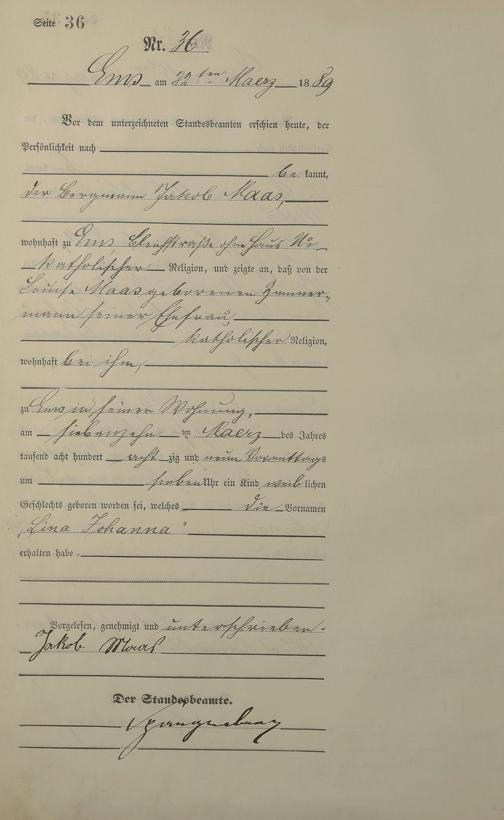 Seite 36
Nr. 36
Ems am 22ten Maerz 1889
Vor dem unterzeichneten Standesbeamten erschien heute, der
Persönlichkeit nach
be kannt,
der Bergmann Jakob Maas,
wohnhaft zu Ems Bleichstraße ohne Haus No
katholischer Religion, und zeigte an, daß von der
Louise Maas geborenen Zimmer-
mann seiner Ehefrau,
katholischer Religion,
wohnhaft bei ihm,
zu Ems in seiner Wohnung,
am siebenzehn ten Maerz des Jahres
tausend acht hundert acht zig und neun Vormittags
um sieben Uhr ein Kind weib lichen
Geschlechts geboren worden sei, welches die Vornamen
„Lina Johanna“
erhalten habe.
Vorgelesen, genehmigt und unterschrieben.
Jakob Maas
Der Standesbeamte.
Spangenberg